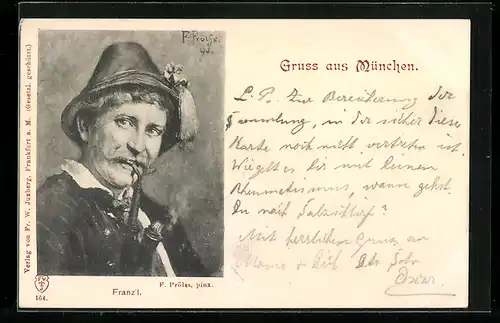 F. Prölß.
Gruss aus München.
L. P. Zur Bereicherung der
Sammlung, in der sicher diese
Karte noch nicht vertreten ist.
Wie geht es Dir mit Deinem
Rheumatismus, wann gehst
Du nach Salzschlirf?
Mit herzlichem Gruss an
Mama + Dich Dein
Verlag von Fr. W. Juxberg, Frankfurt a. M. (Gesetzl. geschützt.)
F. Prölss, pinx.
Franz'l.
164.